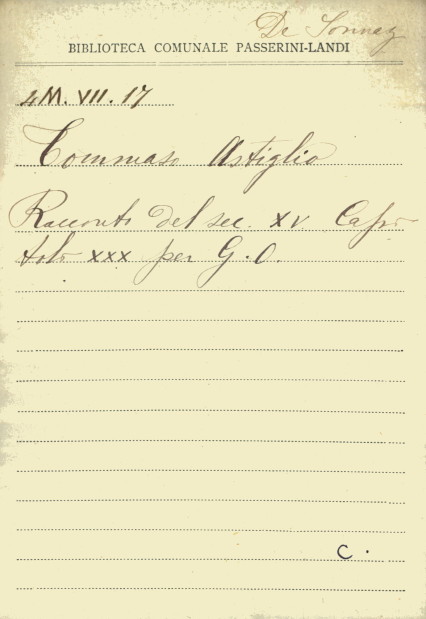 De Sonnaz
BIBLIOTECA COMUNALE PASSERINI-LANDI
4M. VII. 17
Tommaso Astiglio
Racconto del sec. XV Capi-
tolo XXX per G. O.
C.